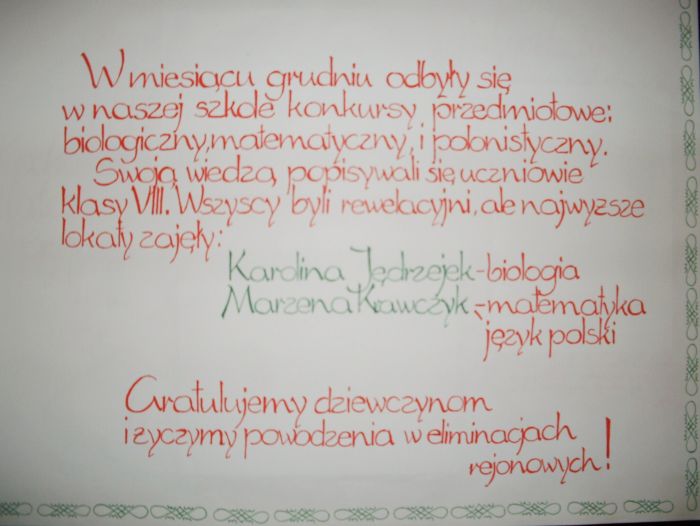 W miesiącu grudniu odbyły się
w naszej szkole konkursy przedmiotowe:
biologiczny, matematyczny, i polonistyczny.
Swoją wiedzą popisywali się uczniowie
klasy VIII. Wszyscy byli rewelacyjni, ale najwyższe
lokaty zajęły:
Karolina Jędrzejek - biologia
Marzena Krawczyk - matematyka
język polski
Gratulujemy dziewczynom
i życzymy powodzenia w eliminacjach
rejonowych!